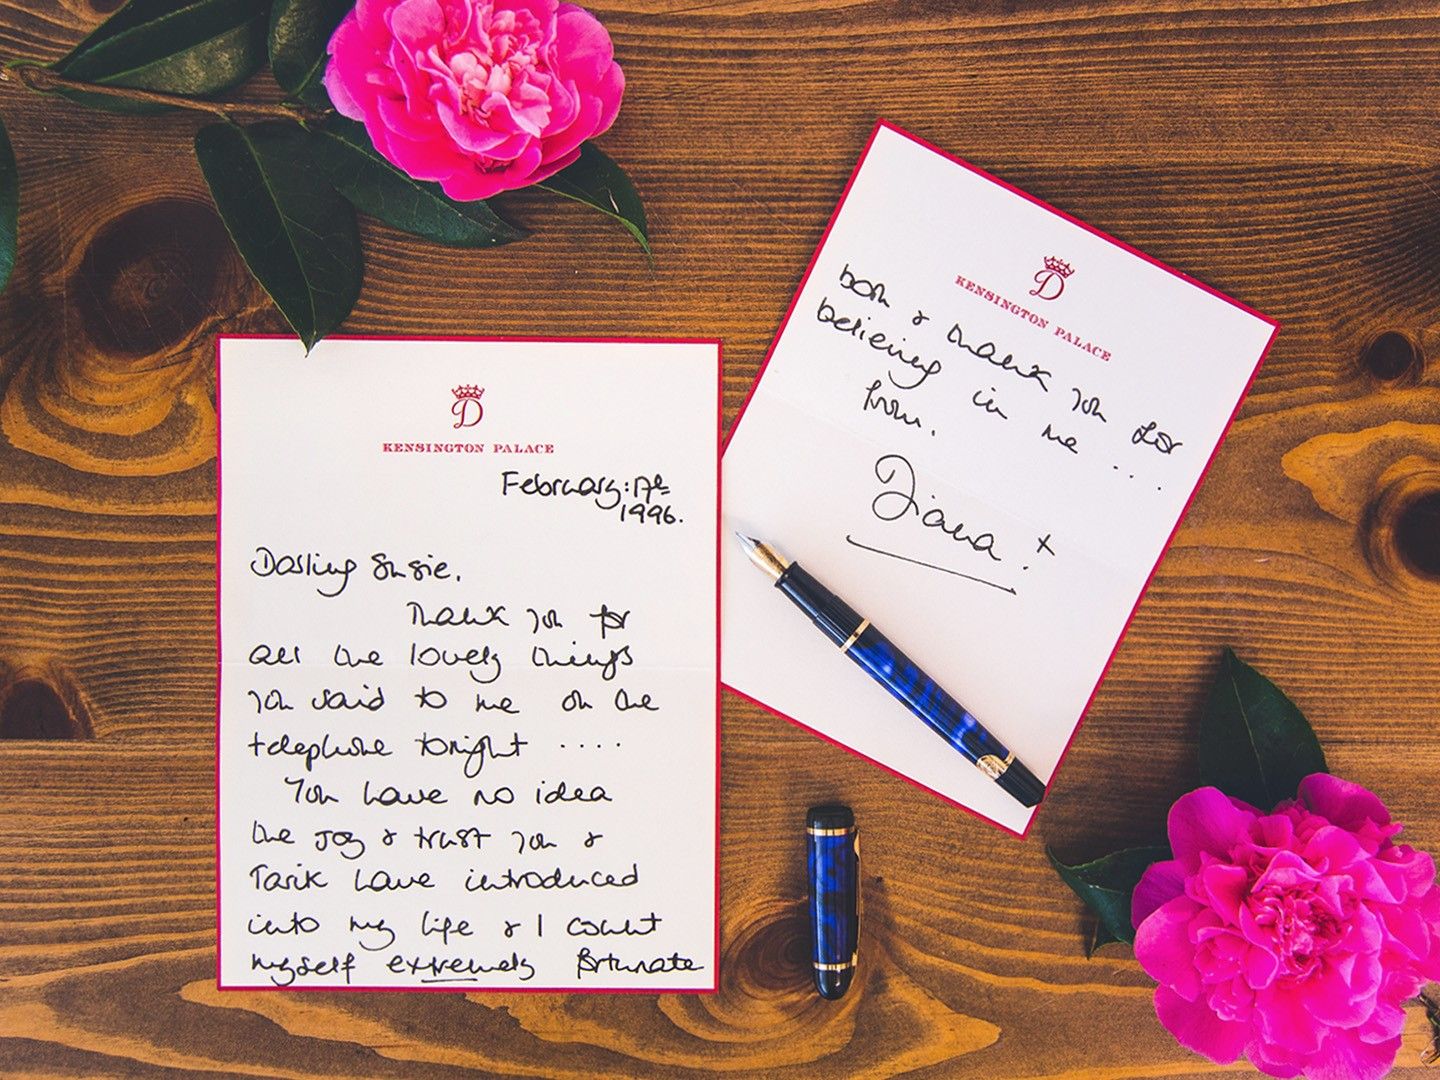 D
KENSINGTON PALACE
February: 17th
1996.
Darling Susie,
Thank you for
all the lovely things
you said to me on the
telephone tonight ....
You have no idea
the joy & trust you &
Tarik have introduced
into my life & I count
myself extremely fortunate
D
KENSINGTON PALACE
both & thank you for
believing in me ...
from.
Diana. x